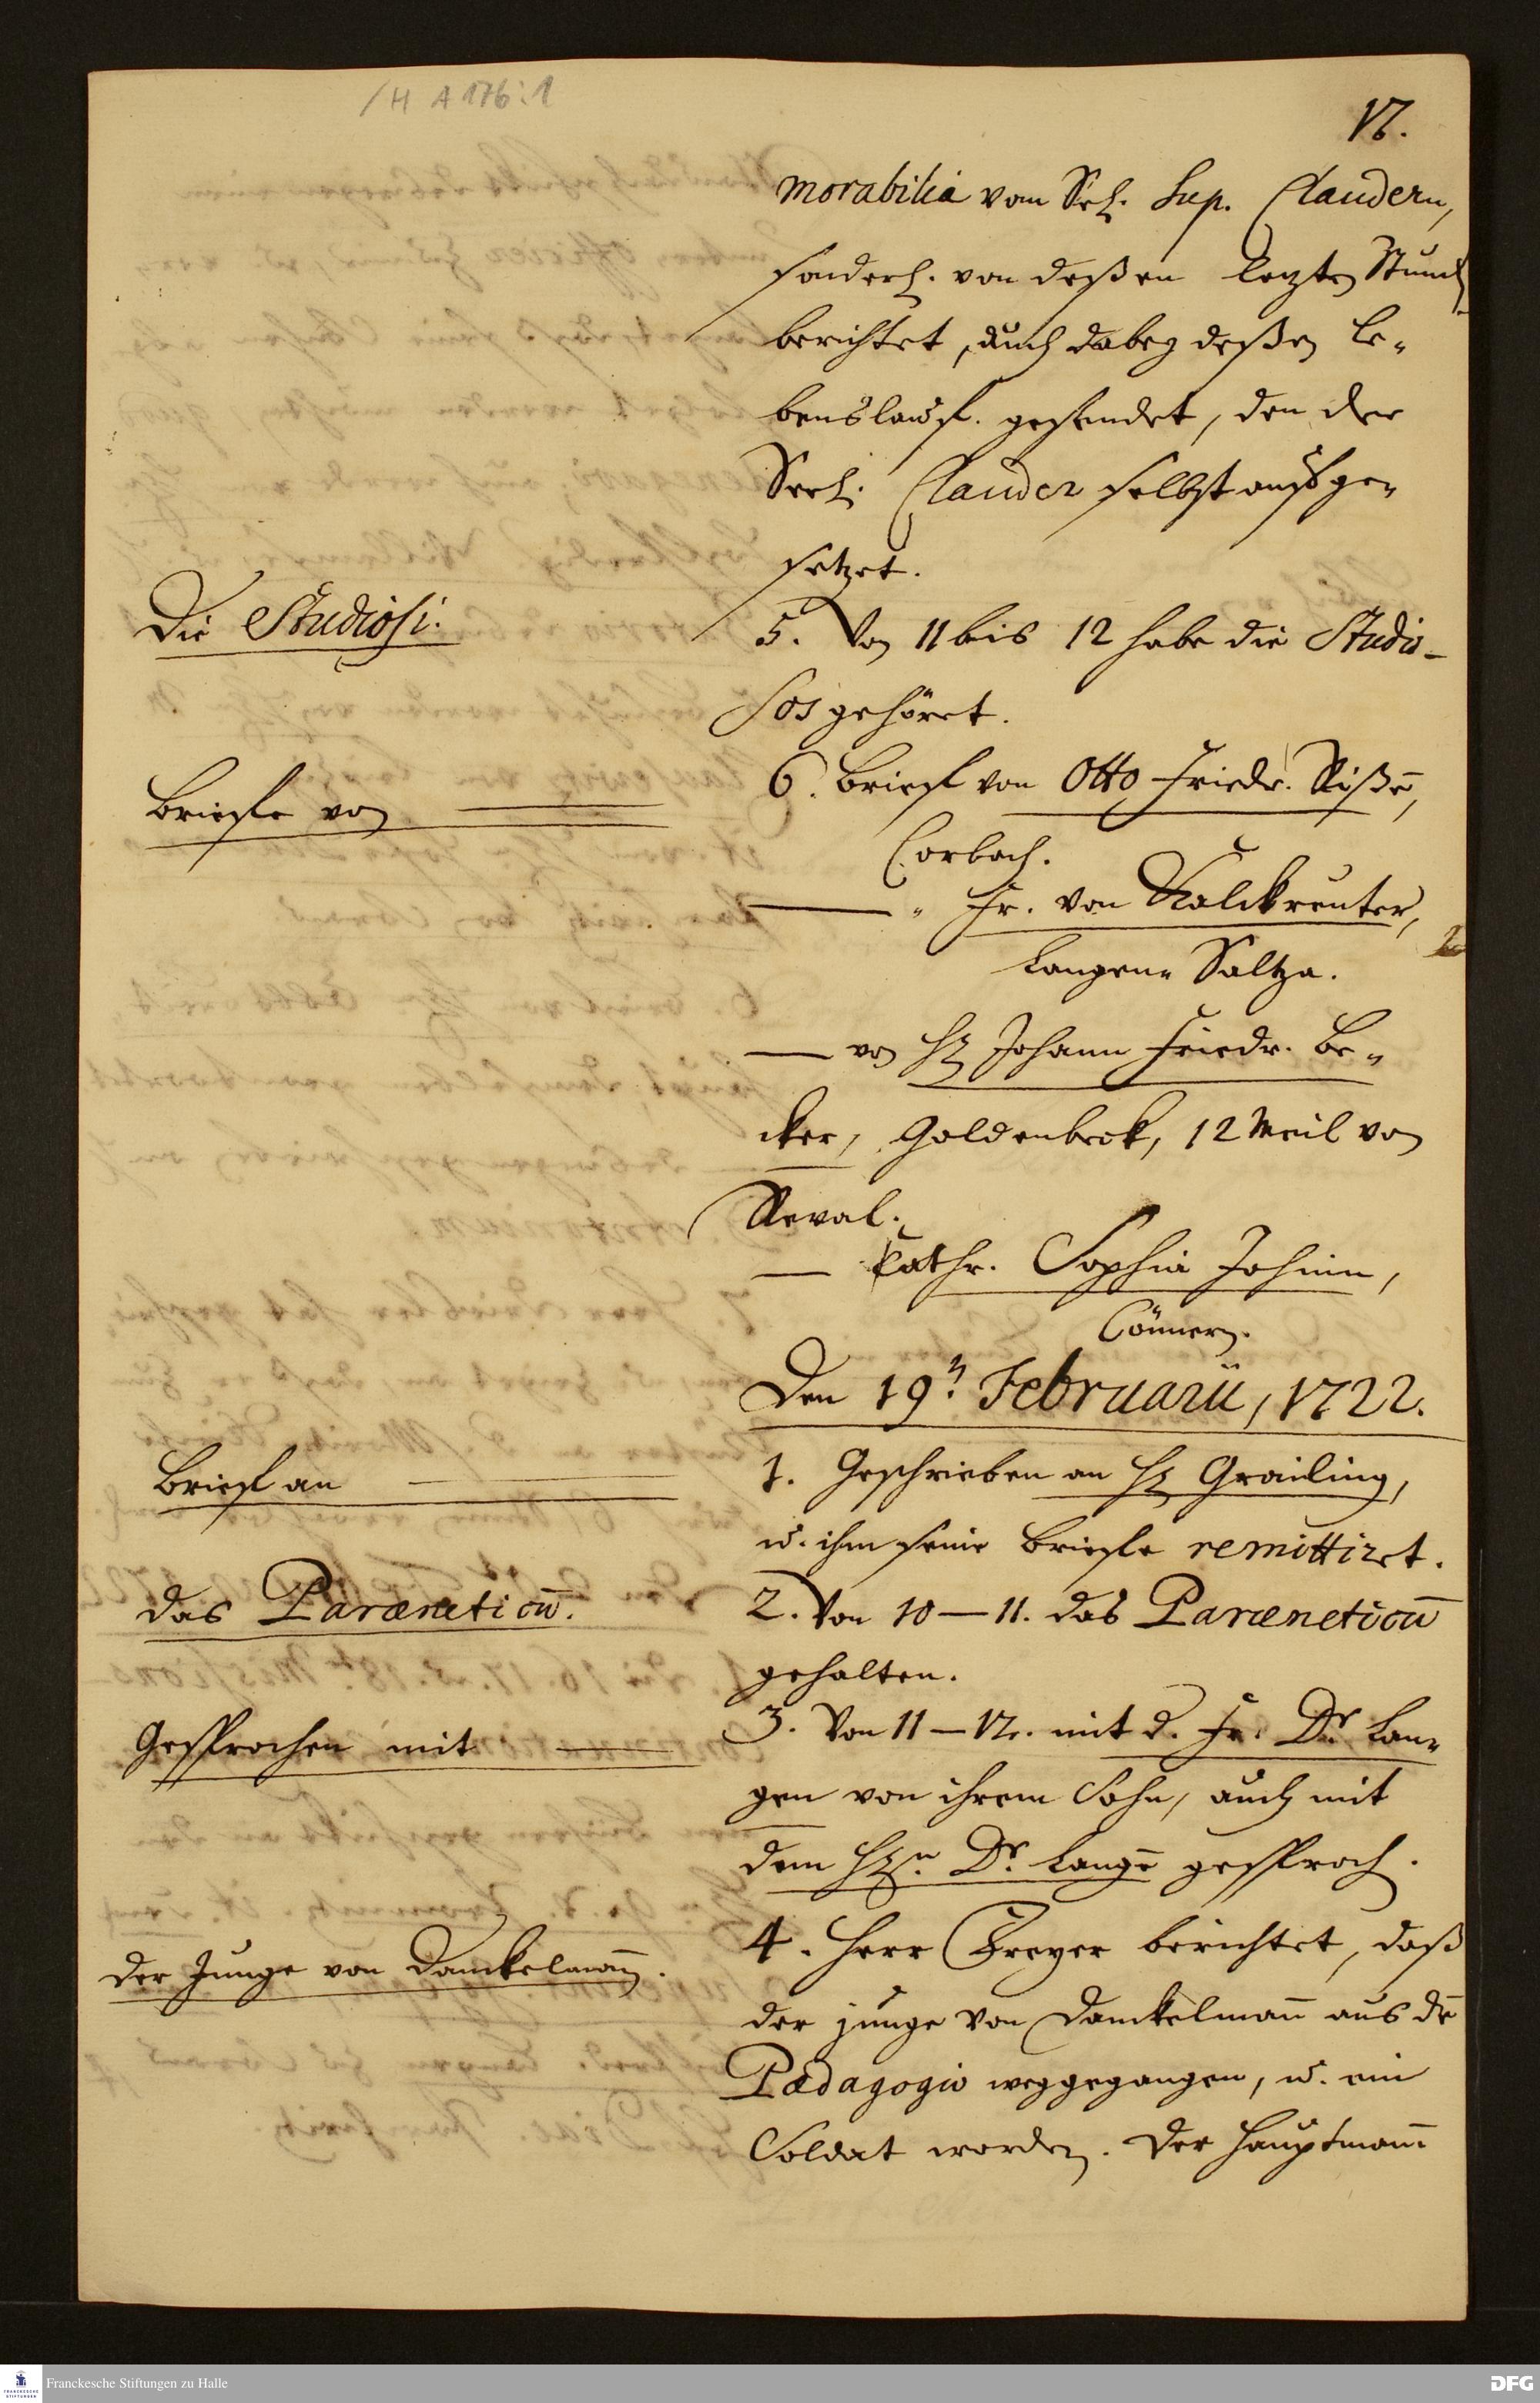 /H A 176:1
17.
morabilia vom Sel. Sup. Claudern,
sonderl. von deßen letzten Stunden
berichtet, auch dabey deßen Le-
benslauf gesendet, den der
Seel. Clauder selbst aufge-
setzet.
Die Studiosi.
5. Von 11 bis 12 habe die Studio-
sos gehöret.
Briefe von
6. Brief von Otto Friedr. Rißē,
Corbach.
" Fr. von Kalckreuter,
Langen-Saltza.
von H. Johann Friedr. Be-
cker, Goldenbeck, 12 Meil von
Reval.
Cathr. Sophia Johnin,
Cönnern.
Den 19.n Februarii, 1722.
Brief an
1. Geschrieben an H. Grailing,
u. ihm seine Briefe remittiret.
das Paræneticū.
2. Von 10–11. das Paræneticū
gehalten.
Gesprochen mit
3. Von 11–12. mit d. Fr. Dr. Lan-
gen von ihrem Sohn, auch mit
dem Hn. Dr. Langē gesproch.
der Junge von Danckelmann.
4. Herr Freyer berichtet, daß
der junge von Danckelmañ aus dē
Pædagogio weggegangen, u. ein
Soldat worden. Der Hauptmañ
Franckesche Stiftungen zu Halle
DFG